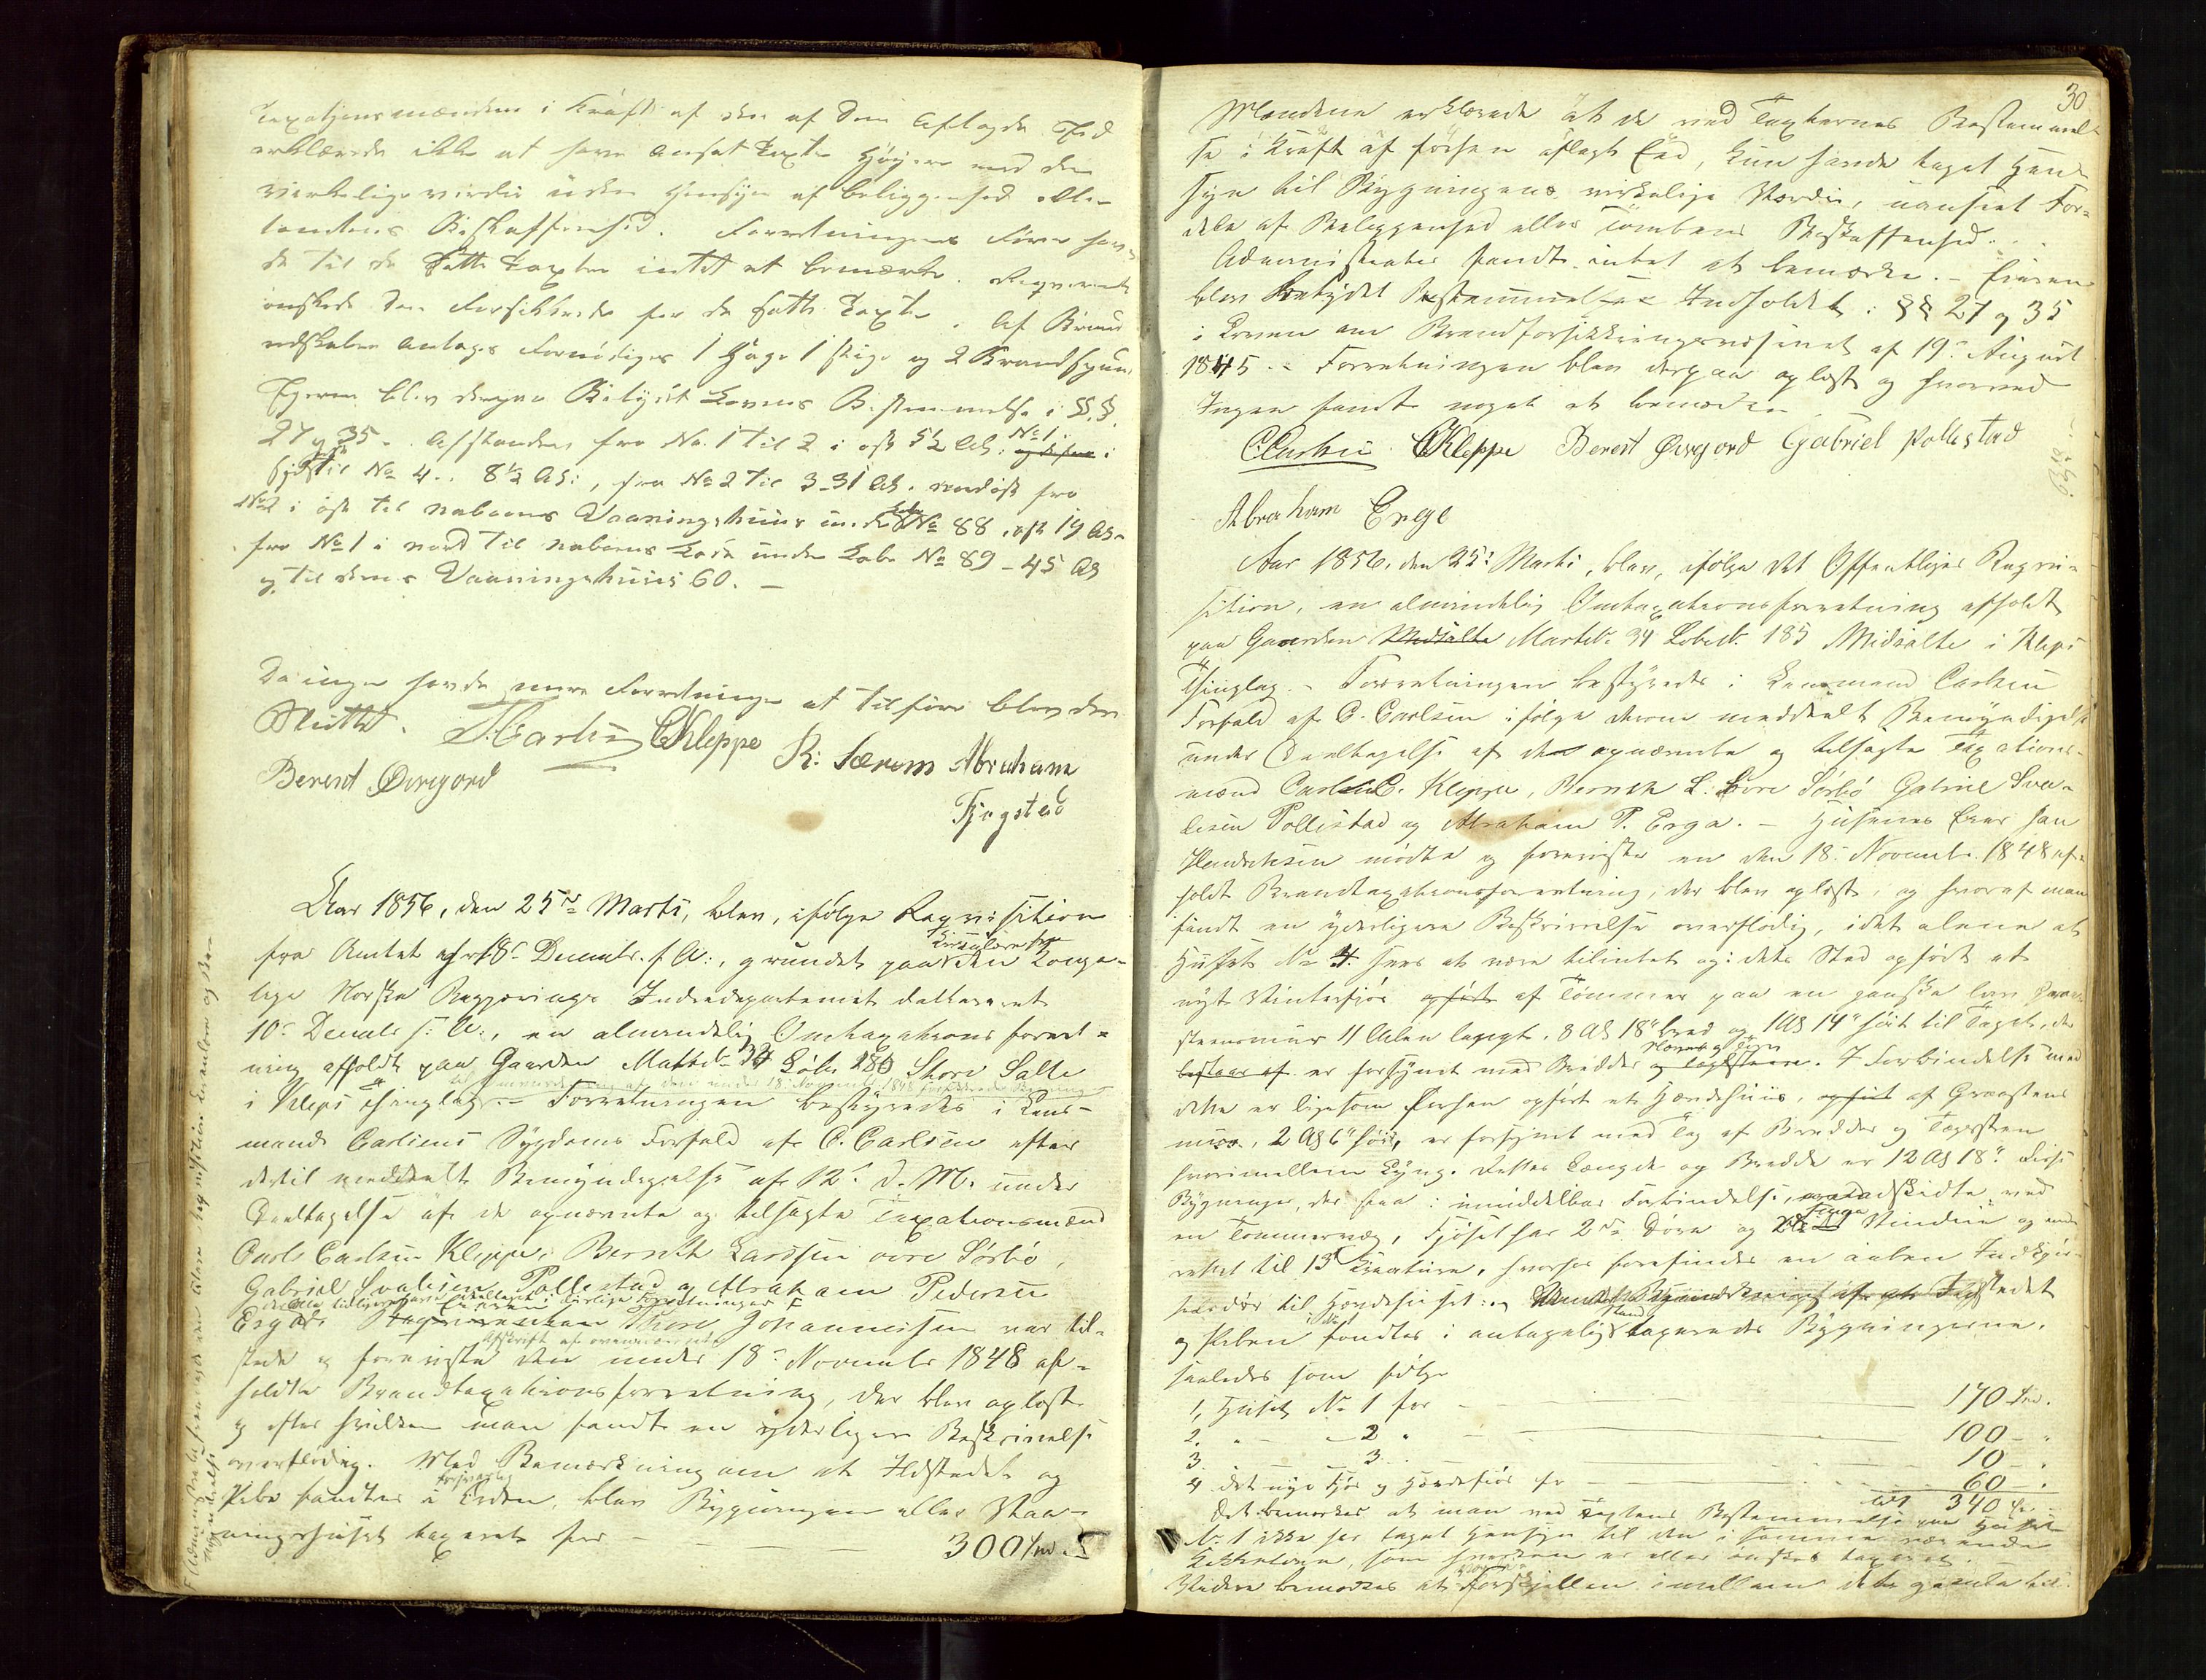 Taxationsmændene i Kraft af den af dem aflagde Eed
erklærede ikke at have ansat Taxten Høyere end den
virkelige værdie uden Hensyn af beliggenhed eller
tomtens Beskaffenhed. Forretningens Fører hav-
de til de satte Taxter intet at bemærke. Reqvirenten
ønskede dem forsikkrede for de satte Taxter. Af Brand-
redskaber antages fornødiges 1 Hage 1 stige og 2 Brandspand
Eieren blev derpaa Betydet Lovens Bestemmelse i §.§.
27 og 35. Afstanden fra No. 1 til 2 i øst 5½ Al: No 1 i
syd til No 4. 8½ Al:, fra No 2 til 3 - 31 Al. nordøst fra
No 2 i øst til naboens Vaaningshuus under Løbe No 88, øst 19 Al
fra No 1 i nord til naboens Lade under Løbe No 89 - 45 Al
og til dennes Vaaningshuus 60. -
Da ingen havde mere Forretningen at tilføre blev den
Sluttet. Carlsen CKleppe R: Særem Abraham
Berent Øvregord
Tjøgsted
Aar 1856, den 25de Marts, blev, ifølge Reqvisition
Circulaire fra
fra Amtet af 18de Decembr. f. A:, grundet paa den Konge-
lige Norske Regjerings Indredepartement datteret
10de Decembr f: A:, en almindelig Omtaxationsforret-
ning afholdt paa Gaarden Mattr No 34 Løbe 180 Store Salte
i Kleps Thinglag. - Forretningen bestyredes i Lens-
mand Carlsens Sygdoms Forfald af C. Carlsen efter
dertil meddeelt Bemyndigelse af 12te d. M. under
Deeltagelse af de opnævnte og tilsagte Taxationsmænd
Carl Carlsen Kleppe, Bernth Larssen øvre Sørbø,
Gabriel Svalesen Pollestad og Abraham Pedersen
Erga. Eieren Thore Johannessen var til-
Afskrift af ovennævnte
stede og foreviste den under 18de Novembr 1848 af-
holdte Brandtaxationsforretning, der blev oplæst
og efter hvilken man fandt en yderligere Beskrivelse
overflødig. Med Bemærkning om at Ildstedet og
forsvarlig
Piben fandtes i Orden, blev Bygningen eller Vaa-
ningshuset taxeret for - - - 300 Spd.
30
Mændene erklærede at de ved Taxternes Bestemmel-
se i Kraft af førhen aflagt Eed, kun havde taget Hen-
syn til Bygningens virkelige Værdie, uanseet For-
dele af Beliggenhed eller Tomtens Beskaffenhed. -
Administrator fandt intet at bemærke. - Eieren
blev betydet Bestemmelsen Indholdet i §§ 27 og 35
i Loven om Brandforsikkringsvæsenet af 19de August
1845. - Forretningen blev derpaa oplæst og hvorved
Ingen fandt noget at bemærke
C. Carlsen CKleppe Berent Øvregord Gabriel Pollestad
Abraham Erge
Aar 1856, den 25de Marts, blev, ifølge det Offentliges Reqvi-
sition, en almindelig Omtaxationsforretning afholdt
paa Gaarden Midsalte Martr. 34 Løbe No. 185 Midsalte i Kleps
Thinglag. - Forretningen bestyredes i Lensmand Carlsens
Forfald af C. Carlsen ifølge denne meddeelt Bemyndigelse
under Deeltagelse af de opnævnte og tilsagte Taxations-
mænd Carl C. Kleppe, Bernth L. øvre Sørbø Gabriel Sva-
lesen Pollestad og Abraham P. Erga. - Husenes Eier Jan
Hendriksen mødte og foreviste en den 18de Novembr. 1848 af-
holdt Brandtaxationsforretning, der blev oplæst, og hvoraf man
fandt en yderligere Beskrivelse overflødig, idet alene at
Huset No 4. sees at være tilintet og i dets Sted opført et
nyt Vinterfjøs opført af Tømmer paa en ganske lav Graa-
steensmuur 11 Alen langt, 8 Al 18" bred og 1 Al 14" høit til Taget, der
er forsynet med Bredder og tagsteen. I Forbindelse med
dette er ligesom førhen opført et Hændehuus, opført af Graasteens
muur, 2 Al 6" høit, er forsynet med Tag af Bredder og Tagsteen
hvorimellem Lyng. Dettes Længde og Bredde er 12 Al 18". Disse
Bygninger, der staa i umiddelbar Forbindelse, adskildte ved
en Tømmervæg, Fjøset har 2de Døre og Vindue og ind-
rettet til 13 Kreature, hvorhos forefindes en aaben Indkjør-
sel til Hændehuset: Ildstedet
Stand
og Piben fandtes i antagelig taxeredes Bygningerne.
saaledes som følger
1, Huset No 1 for - - - 170 Spd.
2. " - - 2 " - - - 100 - "
3. - - 3 - - - 10 - "
4 det nye Fjøs og Hændefjøs for - - - 60 - "
tils 340 Spd. -
Det bemærkes at man ved Taxtens Bestemmelse paa Huset
No 1 ikke har taget Hensyn til den i samme værende
Kakkelovn, som hverken er eller ønskes taxeret. -
Videre bemærkes at Forskjellen imellem dette gamle til